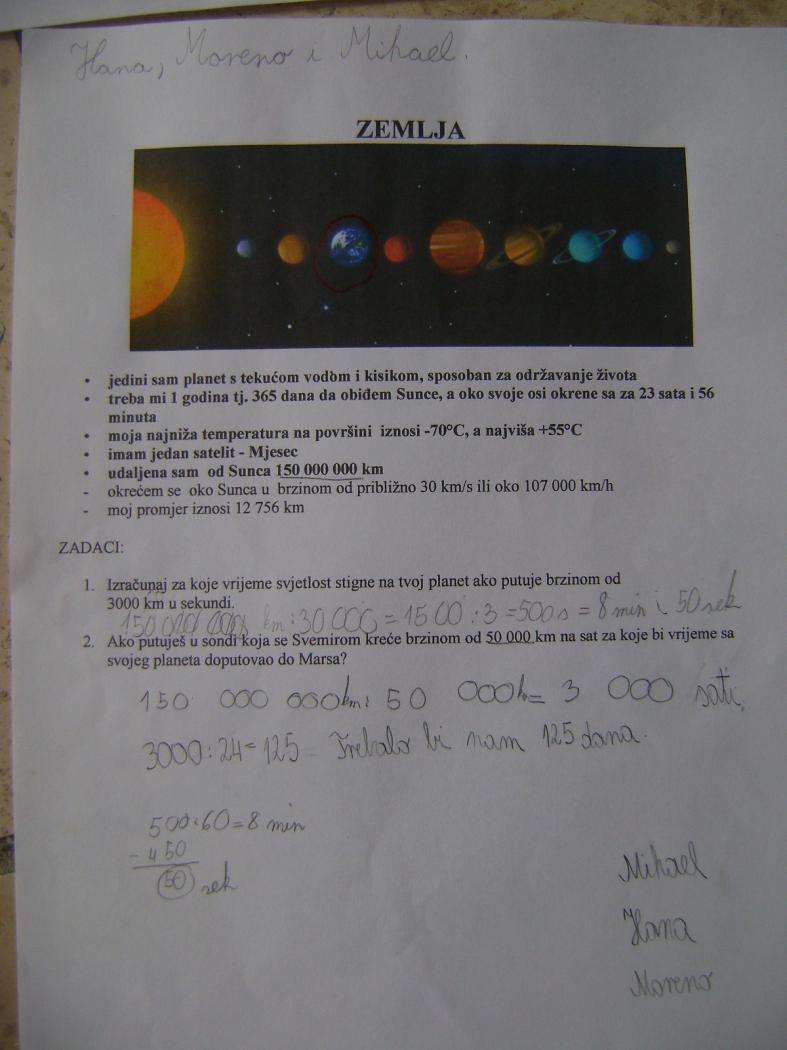 Hana, Moreno i Mihael.
ZEMLJA
• jedini sam planet s tekućom vodom i kisikom, sposoban za održavanje života
• treba mi 1 godina tj. 365 dana da obiđem Sunce, a oko svoje osi okrene sa za 23 sata i 56
minuta
• moja najniža temperatura na površini iznosi -70°C, a najviša +55°C
• imam jedan satelit - Mjesec
• udaljena sam od Sunca 150 000 000 km
- okrećem se oko Sunca u brzinom od približno 30 km/s ili oko 107 000 km/h
- moj promjer iznosi 12 756 km
ZADACI:
1. Izračunaj za koje vrijeme svjetlost stigne na tvoj planet ako putuje brzinom od
3000 km u sekundi.
150 000 000 km : 30 000 = 1500 : 3 = 500 s = 8 min i 50 sek
2. Ako putuješ u sondi koja se Svemirom kreće brzinom od 50 000 km na sat za koje bi vrijeme sa
svojeg planeta doputovao do Marsa?
150 000 000km : 50 000k= 3 000 sati.
3000 : 24 = 125 Trebalo bi nam 125 dana.
500 : 60 = 8 min
- 450
50 sek
Mihael
Hana
Moreno